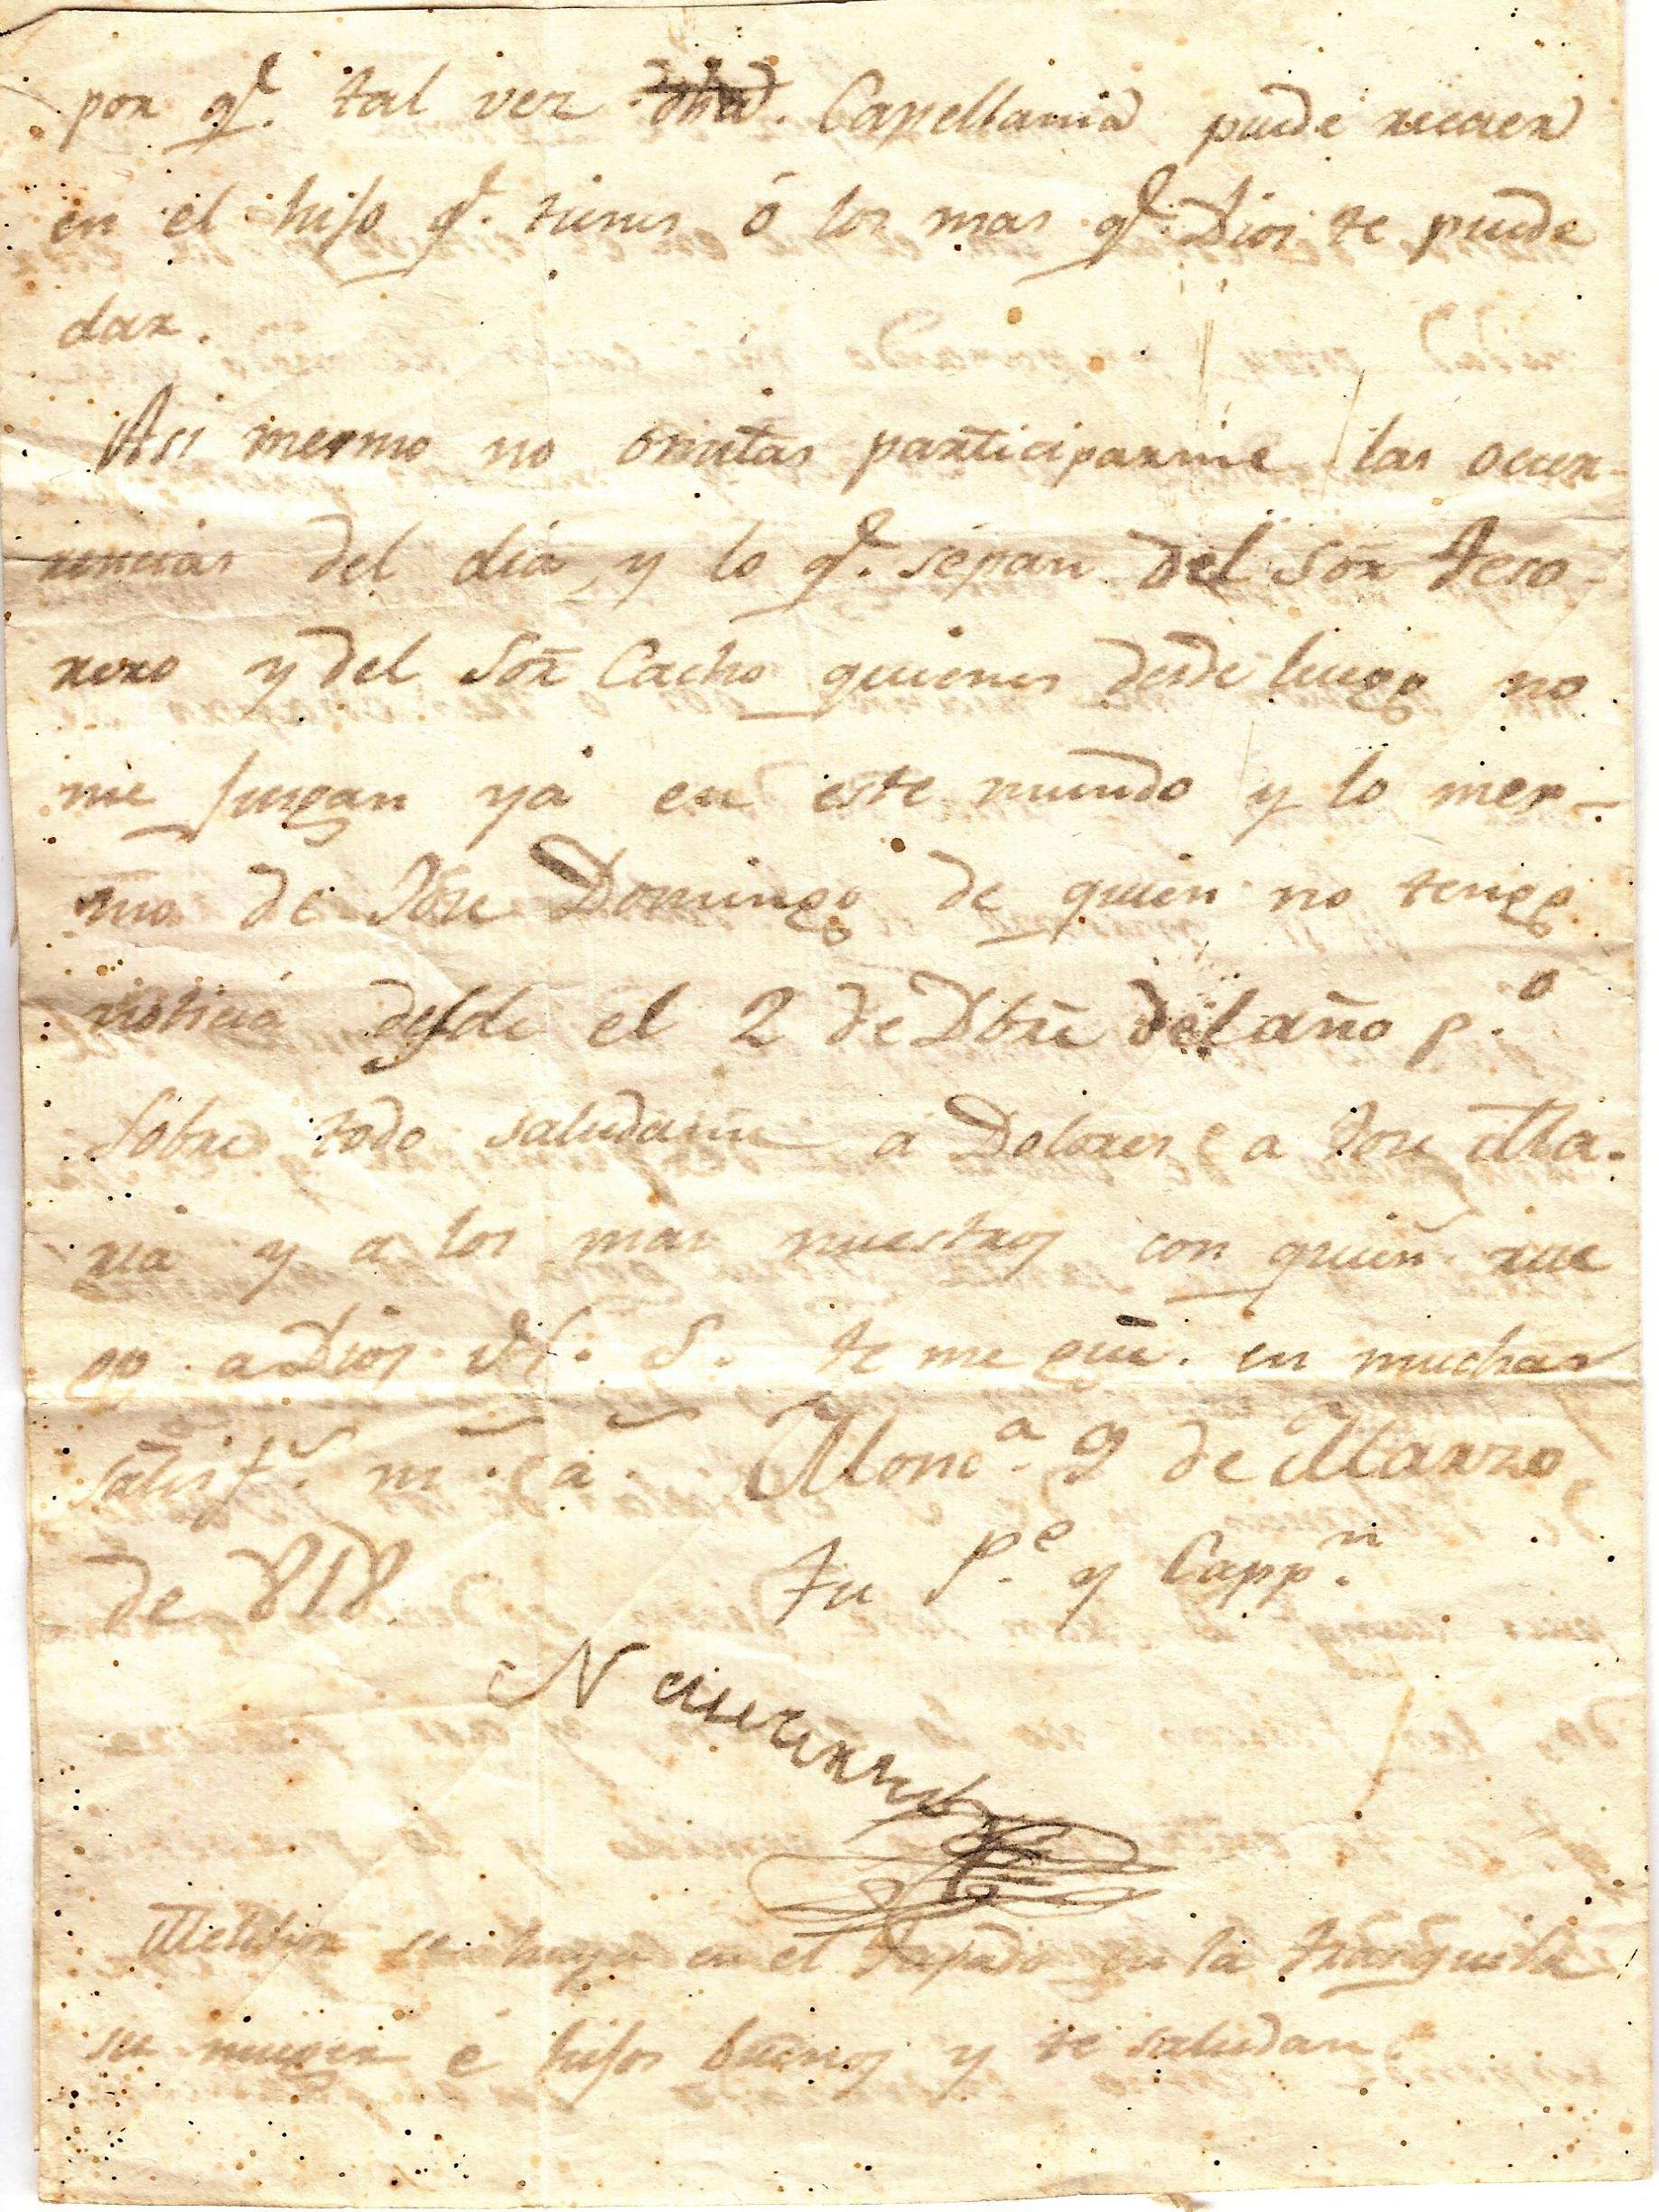 por q.e tal vez dha. Capellania puede recaer
en el hijo q.e tienes ó los mas q.e Dios te puede
dar.
Asi mesmo no omitas participarme las ocur-
rencias del dia, y lo q.e sepan del Sor Teso-
rero y del Sor Cacho quienes desde luego no
me jusgan ya en este mundo y lo mes-
mo de Jose Domingo de quien no tengo
noticia desde el 2 de Dbre del año p.o
Sobre todo saludame a Dolores e a Jose Ma-
ria y a los mas nuestros con quien rue
go a Dios N. S. te me gue. en muchas
satisf.s m. a. Monc.a 9 de Marzo
de 818. tu P.e y Capp.n
en el Tapado en la tranquila
su muger é hijos buenos y te saludan.